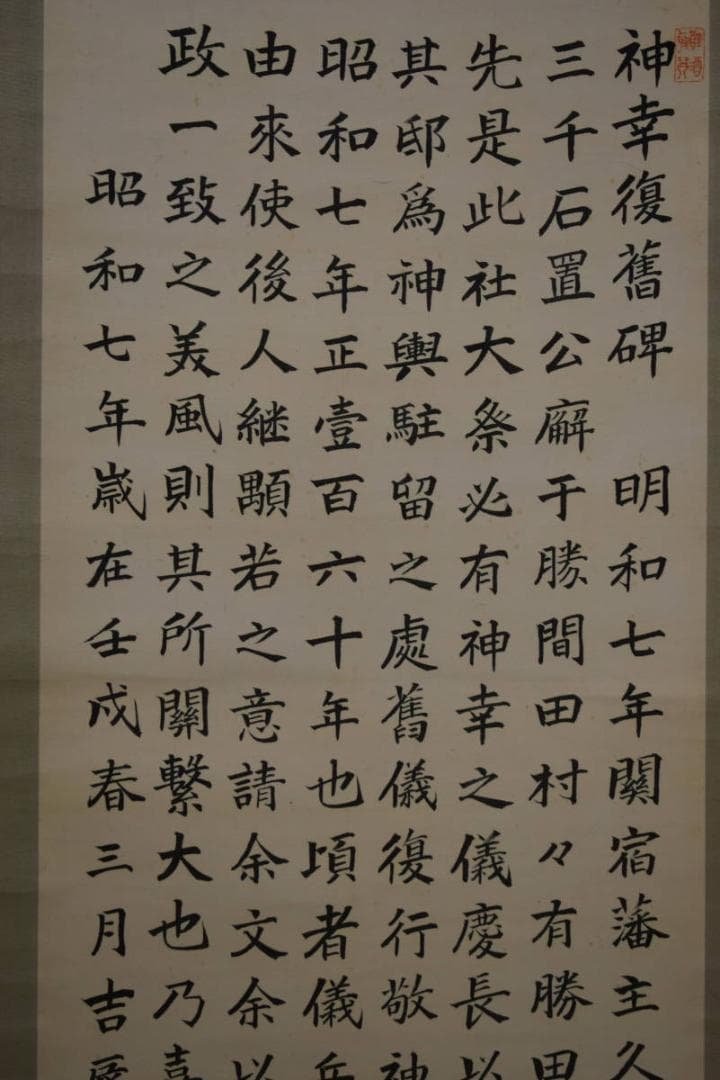 神幸復舊碑 明和七年關宿藩主久
三千石置公廨于勝間田村々有勝田
先是此社大祭必有神幸之儀慶長以
其邸爲神輿駐留之處舊儀復行敬神
昭和七年正壹百六十年也頃者儀
由來使後人継顒若之意請余文余以
政一致之美風則其所關繋大也乃喜
昭和七年歲在壬戌春三月吉